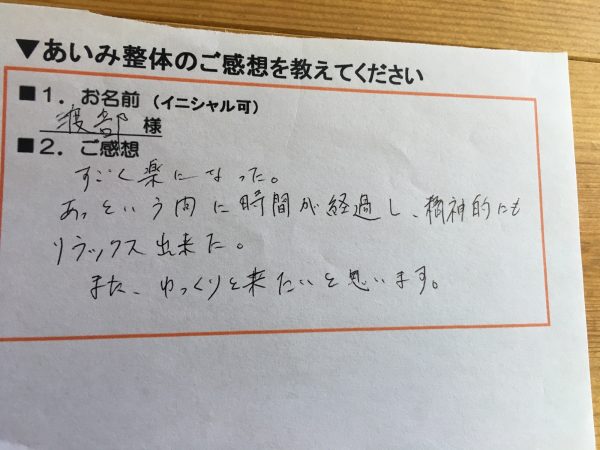 ▼あいみ整体のご感想を教えてください
■1. お名前（イニシャル可）
渡部 様
■2. ご感想
すごく楽になった。
あっという間に時間が経過し、精神的にも
リラックス出来た。
また、ゆっくりと来たいと思います。